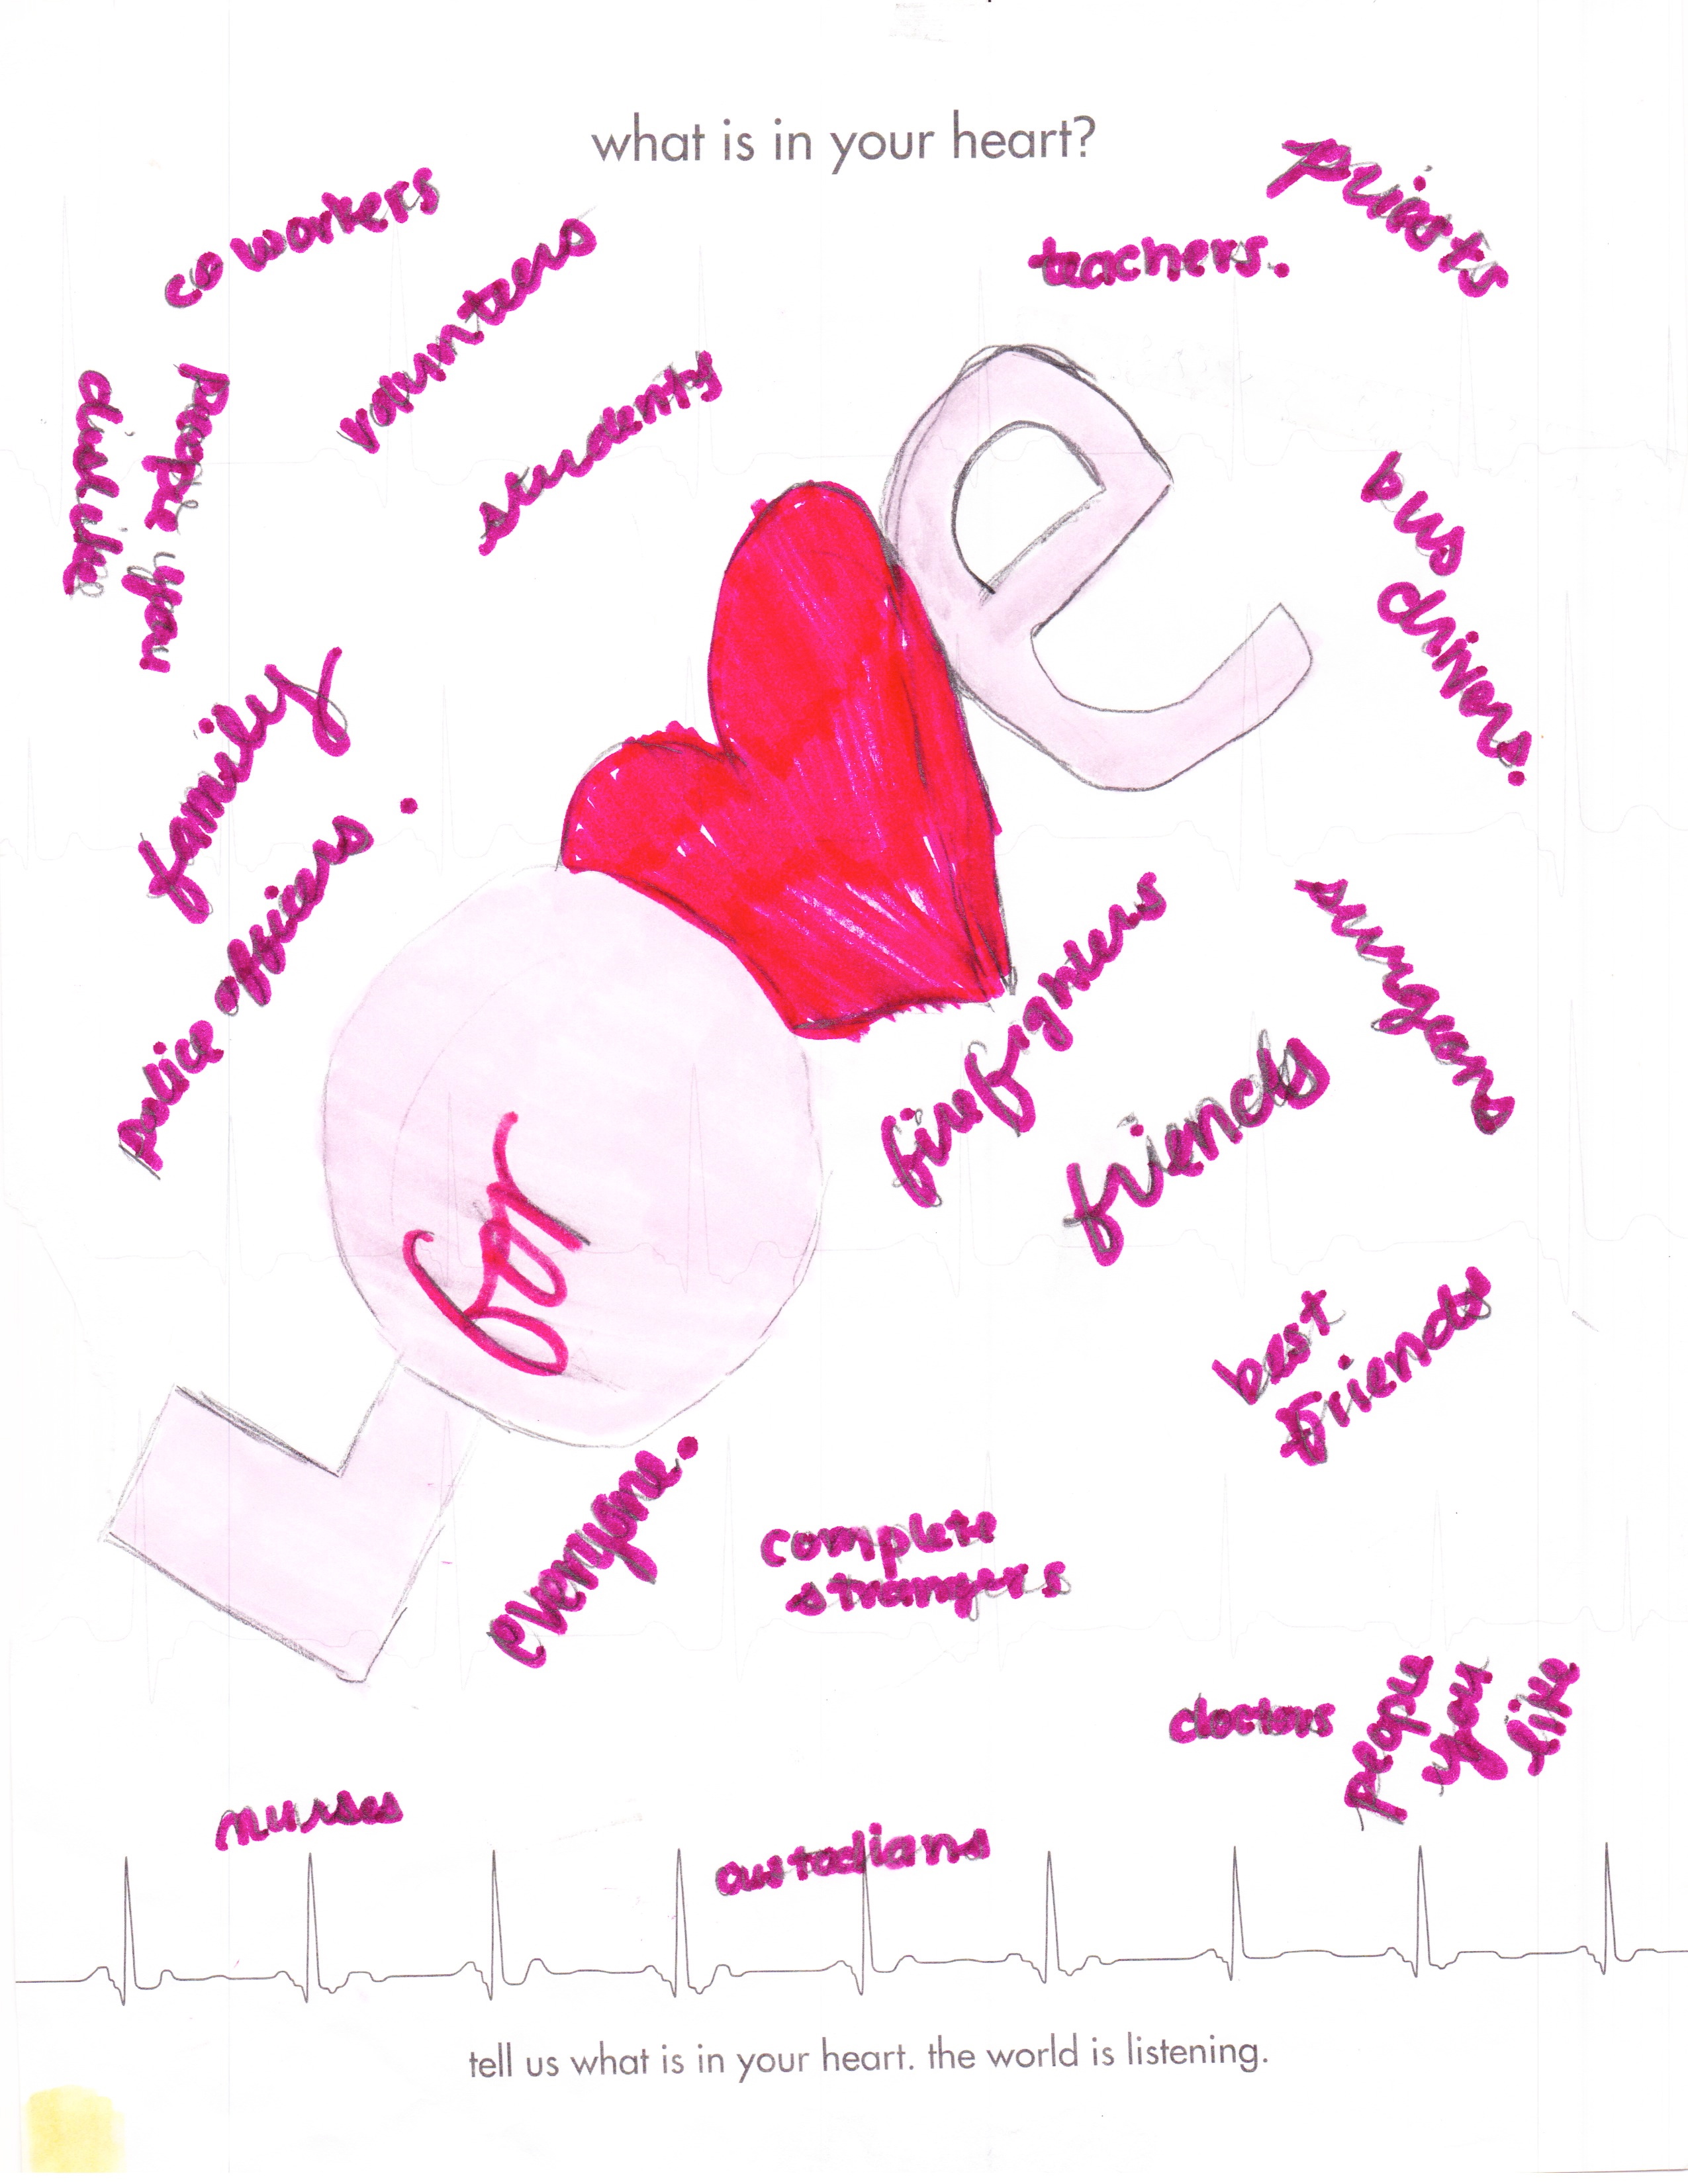 what is in your heart?
coworkers
volunteers
students
teachers.
priests
people you
dislike
bus drivers.
family
police officers.
LO♥e
for
firefighters
surgeons
friends
best
friends
everyone.
complete
strangers
doctors
people
you
like
nurses
custodians
tell us what is in your heart. the world is listening.